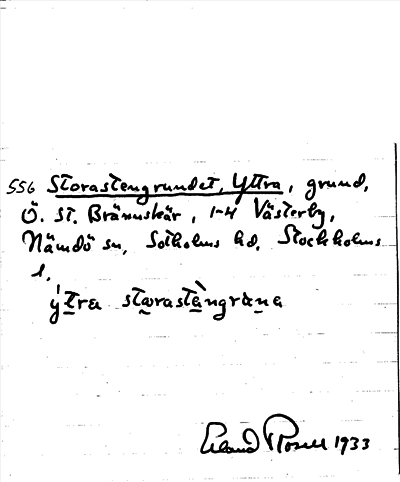 556 Storastengrundet, Yttra, grund,
Ö. St. Brännskär, 1-4 Västerby,
Nämdö sn, Sotholms hd, Stockholms
l.
ýt̲ra st̲o̰rast̲à̲ngrɷn̲ɐ
Erland Rosell 1933